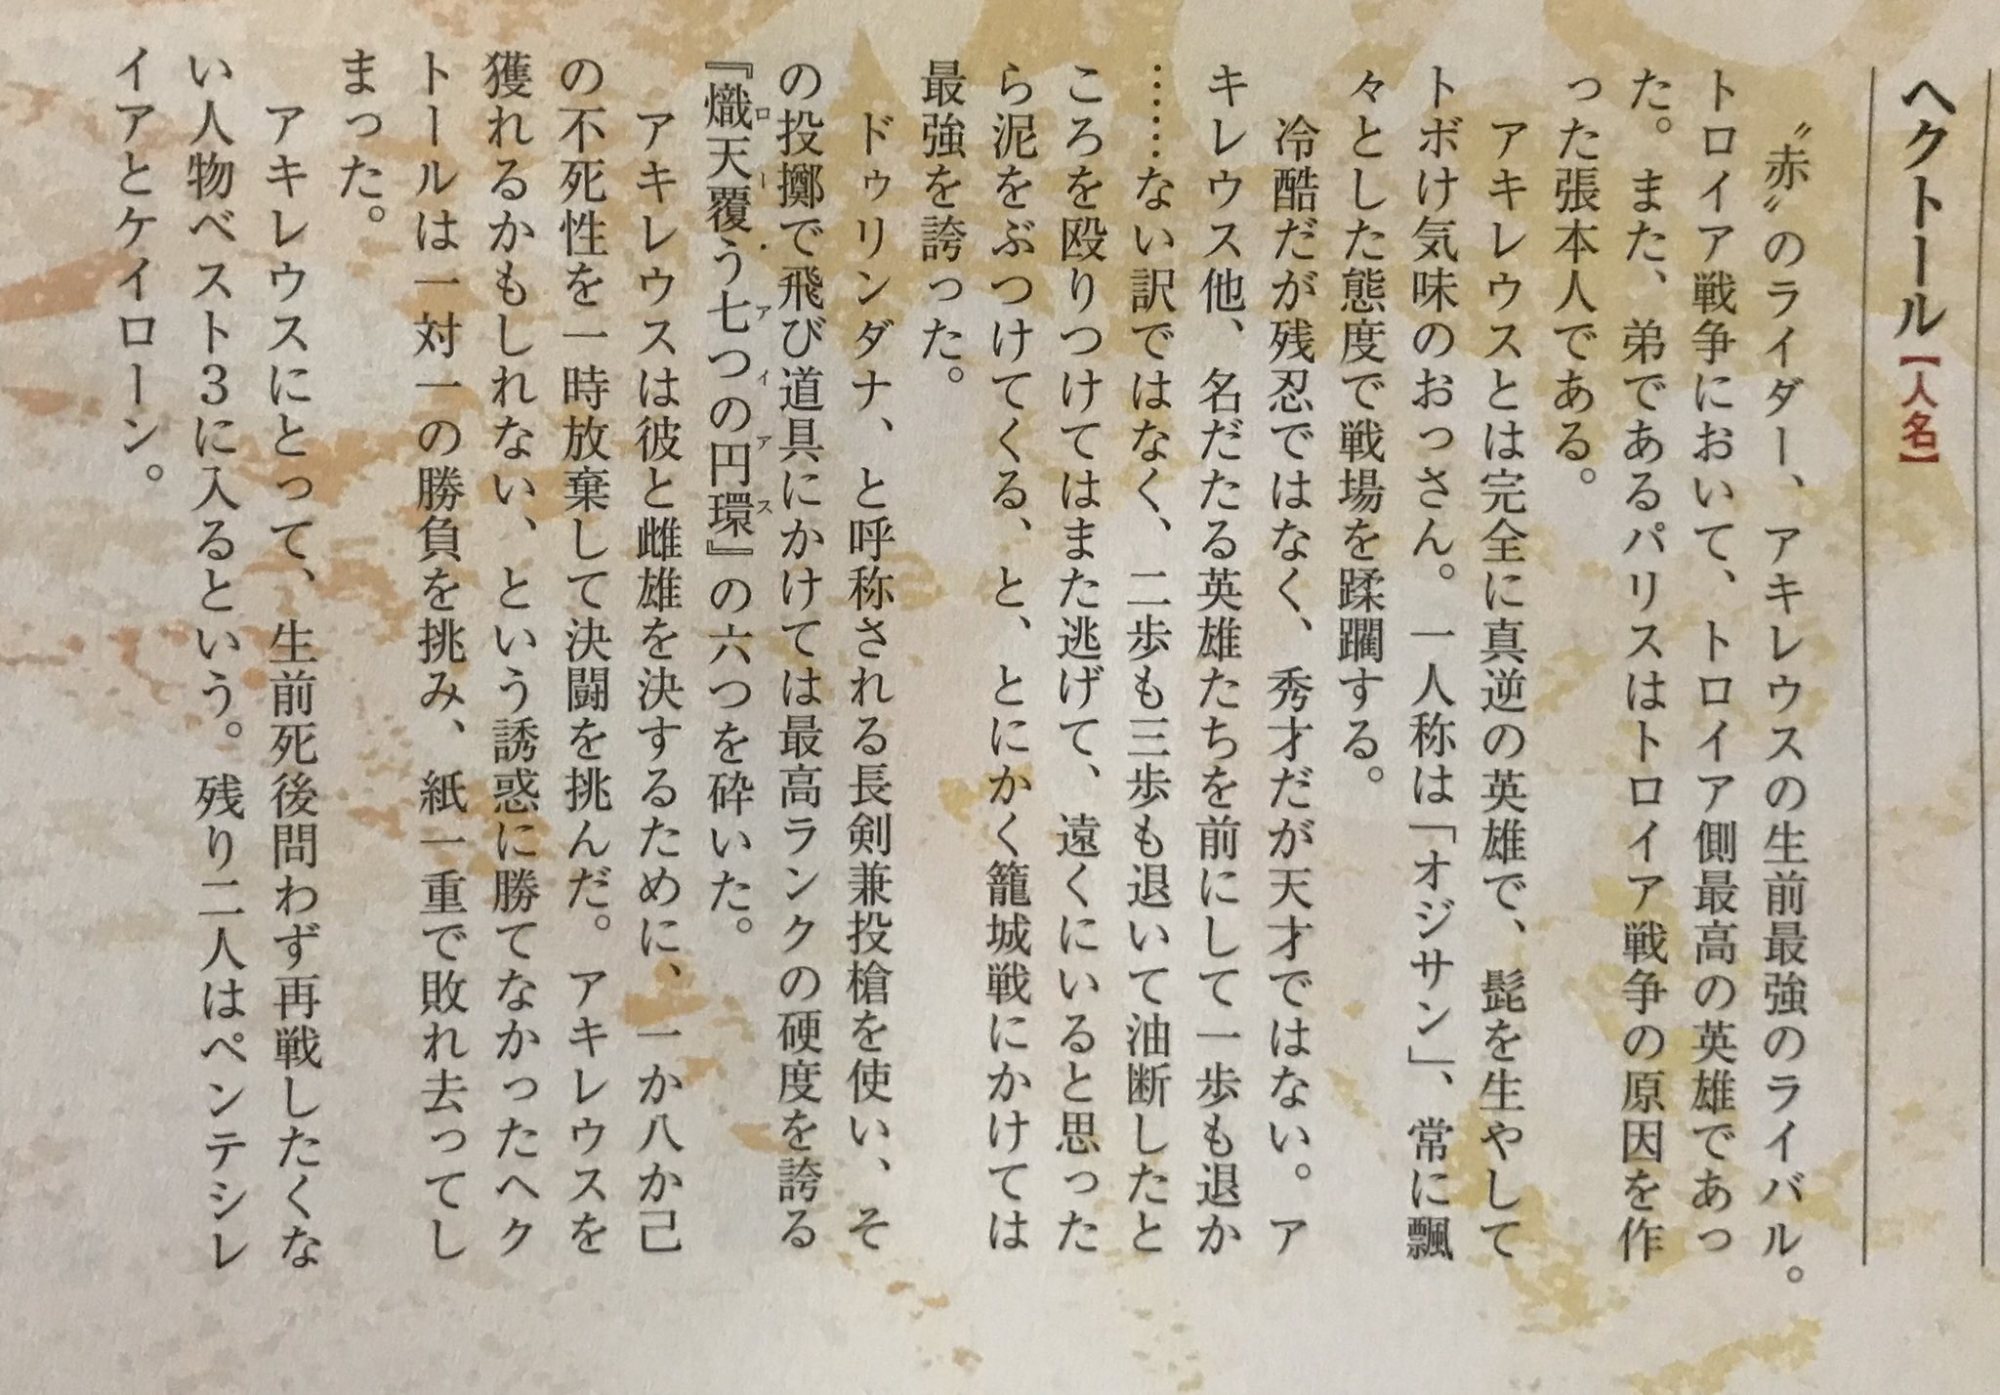 ヘクトール【人名】
〝赤〟のライダー、アキレウスの生前最強のライバル。
トロイア戦争において、トロイア側最高の英雄であっ
た。また、弟であるパリスはトロイア戦争の原因を作
った張本人である。
アキレウスとは完全に真逆の英雄で、髭を生やして
トボけ気味のおっさん。一人称は「オジサン」、常に飄
々とした態度で戦場を蹂躙する。
冷酷だが残忍ではなく、秀才だが天才ではない。ア
キレウス他、名だたる英雄たちを前にして一歩も退か
……ない訳ではなく、二歩も三歩も退いて油断したと
ころを殴りつけてはまた逃げて、遠くにいると思った
ら泥をぶつけてくる、と、とにかく籠城戦にかけては
最強を誇った。
ドゥリンダナ、と呼称される長剣兼投槍を使い、そ
の投擲で飛び道具にかけては最高ランクの硬度を誇る
『熾天覆う七つの円環』の六つを砕いた。
ロー・アイアス
アキレウスは彼と雌雄を決するために、一か八か己
の不死性を一時放棄して決闘を挑んだ。アキレウスを
獲れるかもしれない、という誘惑に勝てなかったヘク
トールは一対一の勝負を挑み、紙一重で敗れ去ってし
まった。
アキレウスにとって、生前死後問わず再戦したくな
い人物ベスト3に入るという。残り二人はペンテシレ
イアとケイローン。